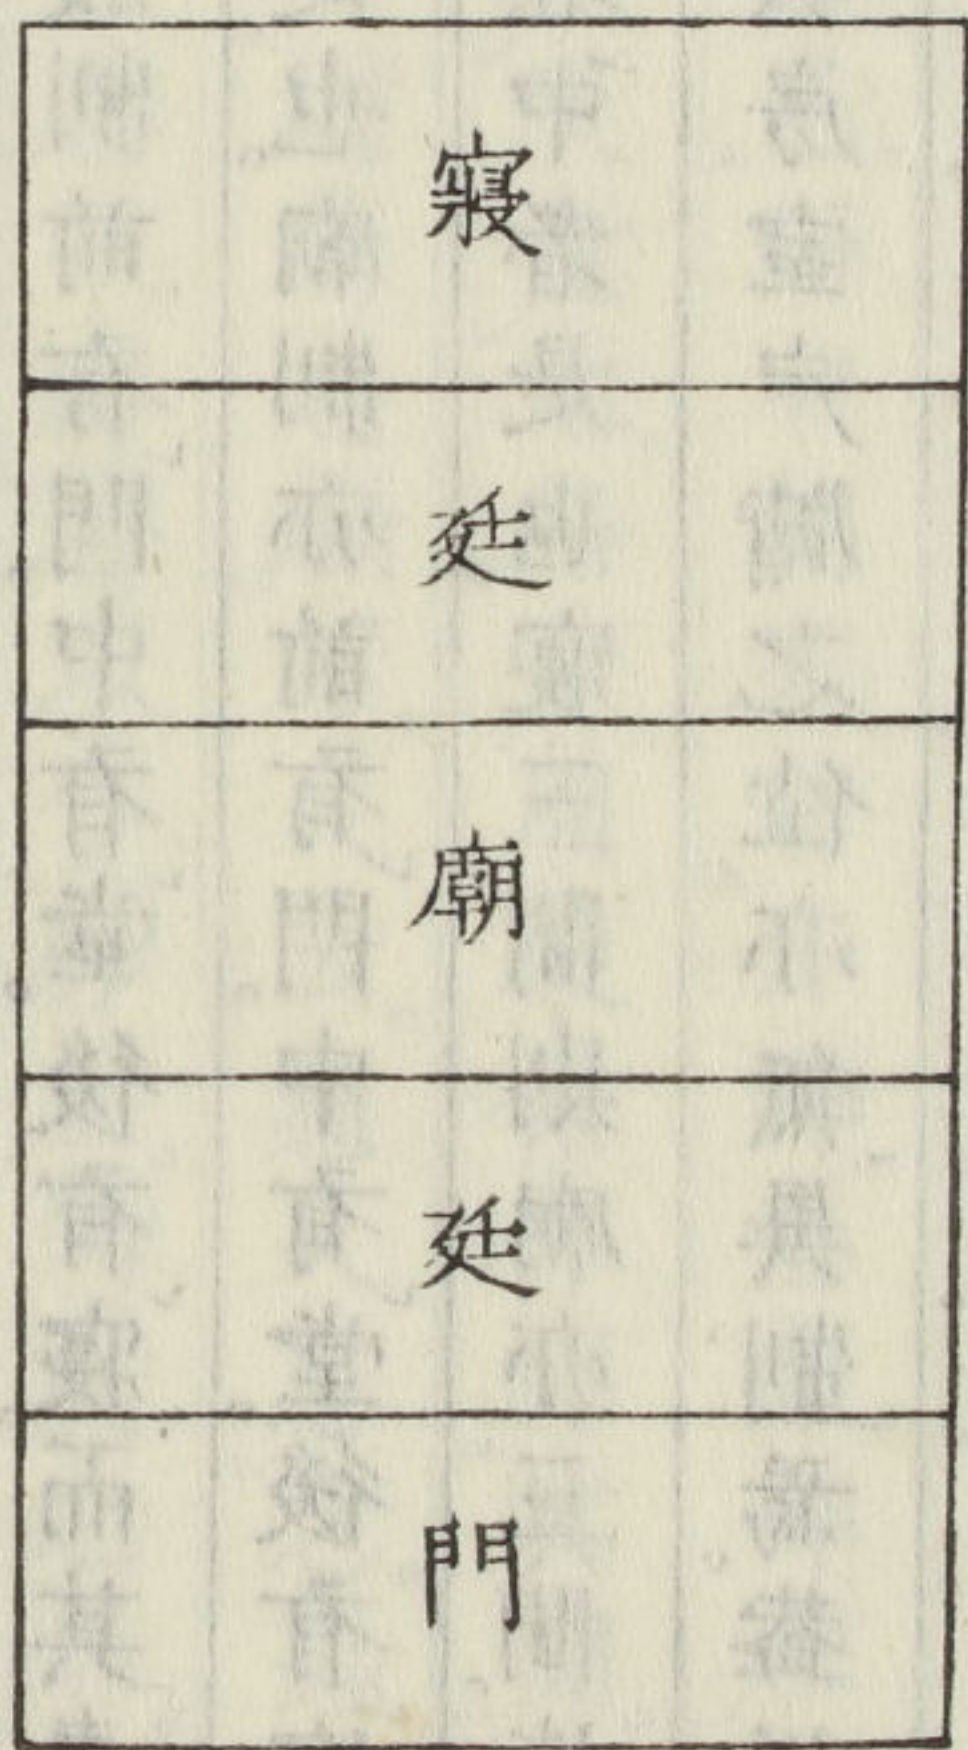 寢
廷
廟
廷
門